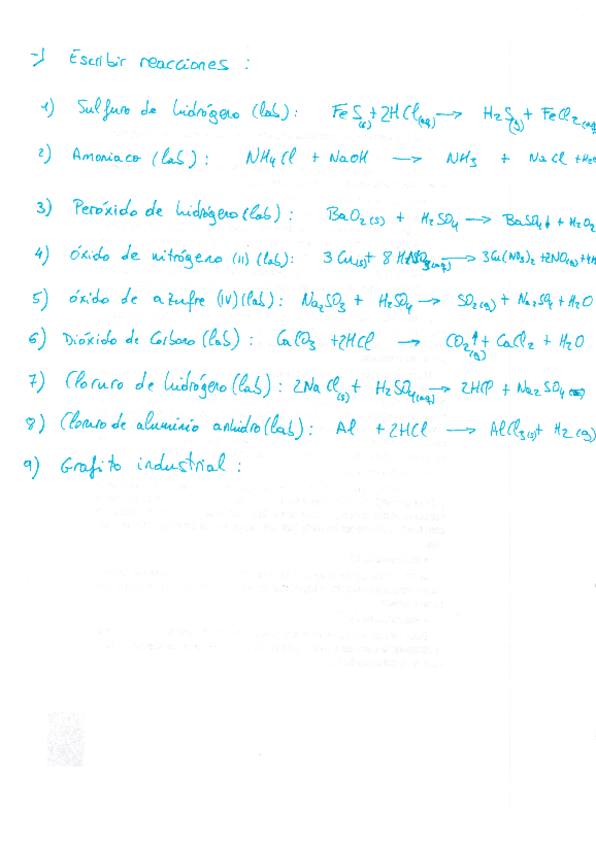 -) Escribir reacciones :
1) Sulfuro de hidrógeno (lab) : FeS(s) + 2HCl(aq) → H2S(g) + FeCl2(aq
2) Amoniaco (lab) : NH4Cl + NaOH → NH3 + NaCl +H2O
3) Peróxido de hidrógeno (lab) : BaO2(s) + H2SO4 → BaSO4↓ + H2O2
4) óxido de nitrógeno (II) (lab): 3 Cu(s)+ 8 HNO3(aq) → 3Cu(NO3)2 +2NO(g) +4H
5) óxido de azufre (IV) (lab) : Na2SO3 + H2SO4 → SO2(g) + Na2SO4 + H2O
6) Dióxido de Carbono (lab) : CaCO3 +2HCl → CO2(g)↑ + CaCl2 + H2O
7) Cloruro de hidrógeno (lab) : 2NaCl(s) + H2SO4(aq) → 2HCl + Na2SO4
8) Cloruro de aluminio anhidro (lab) : Al + 2HCl → AlCl3(s) + H2(g)
9) Grafito industrial :